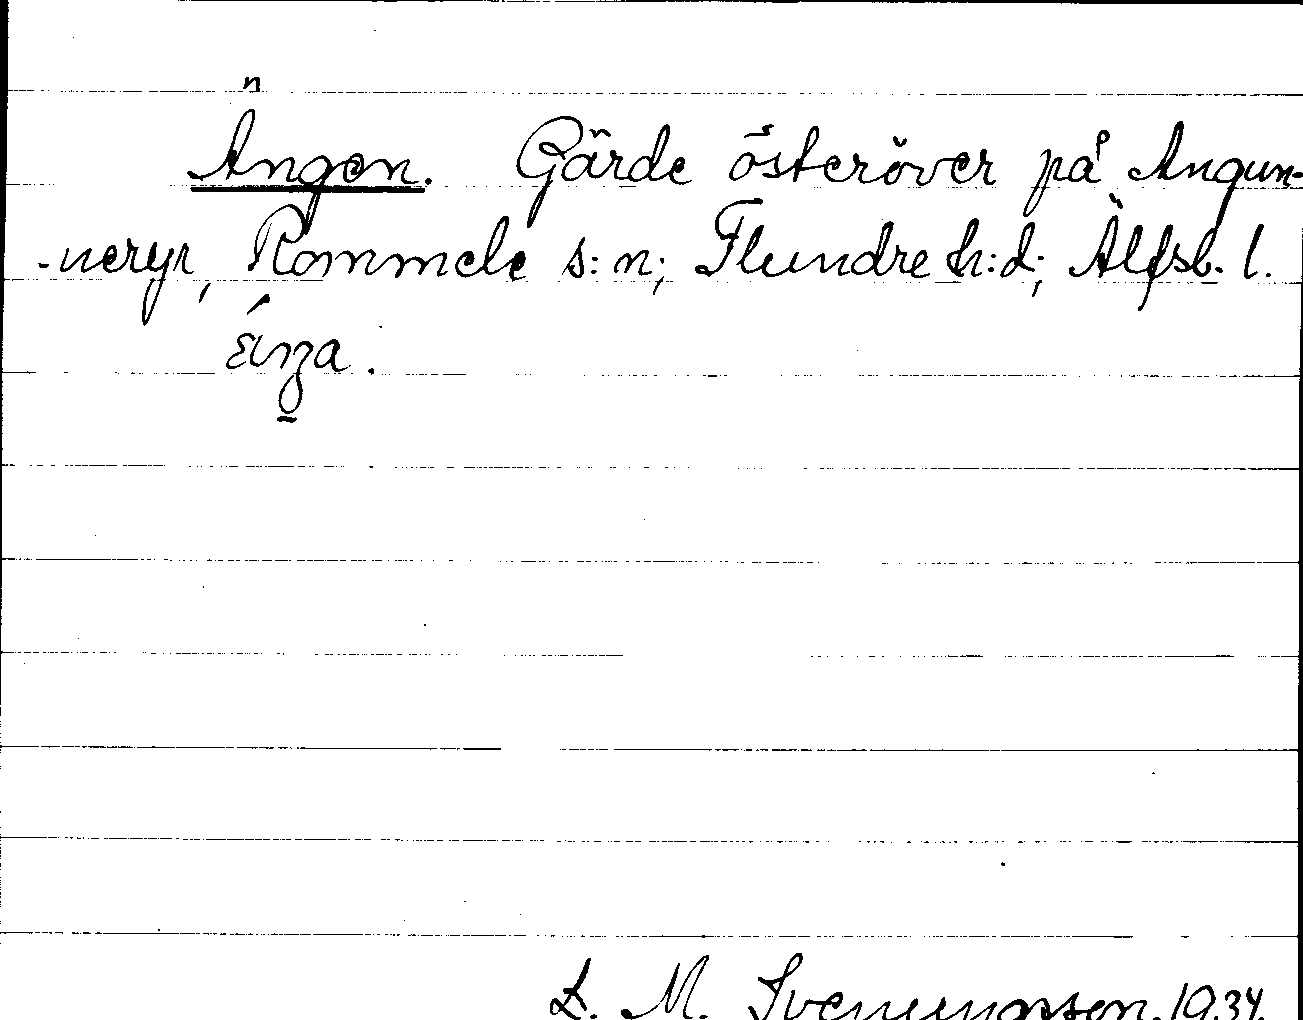 Ängen. Gärde österöver på Angun-
-neryr, Rommele s:n; Flundre h:d; Älfsb. l.
L. M. Svenungsson. 1934.